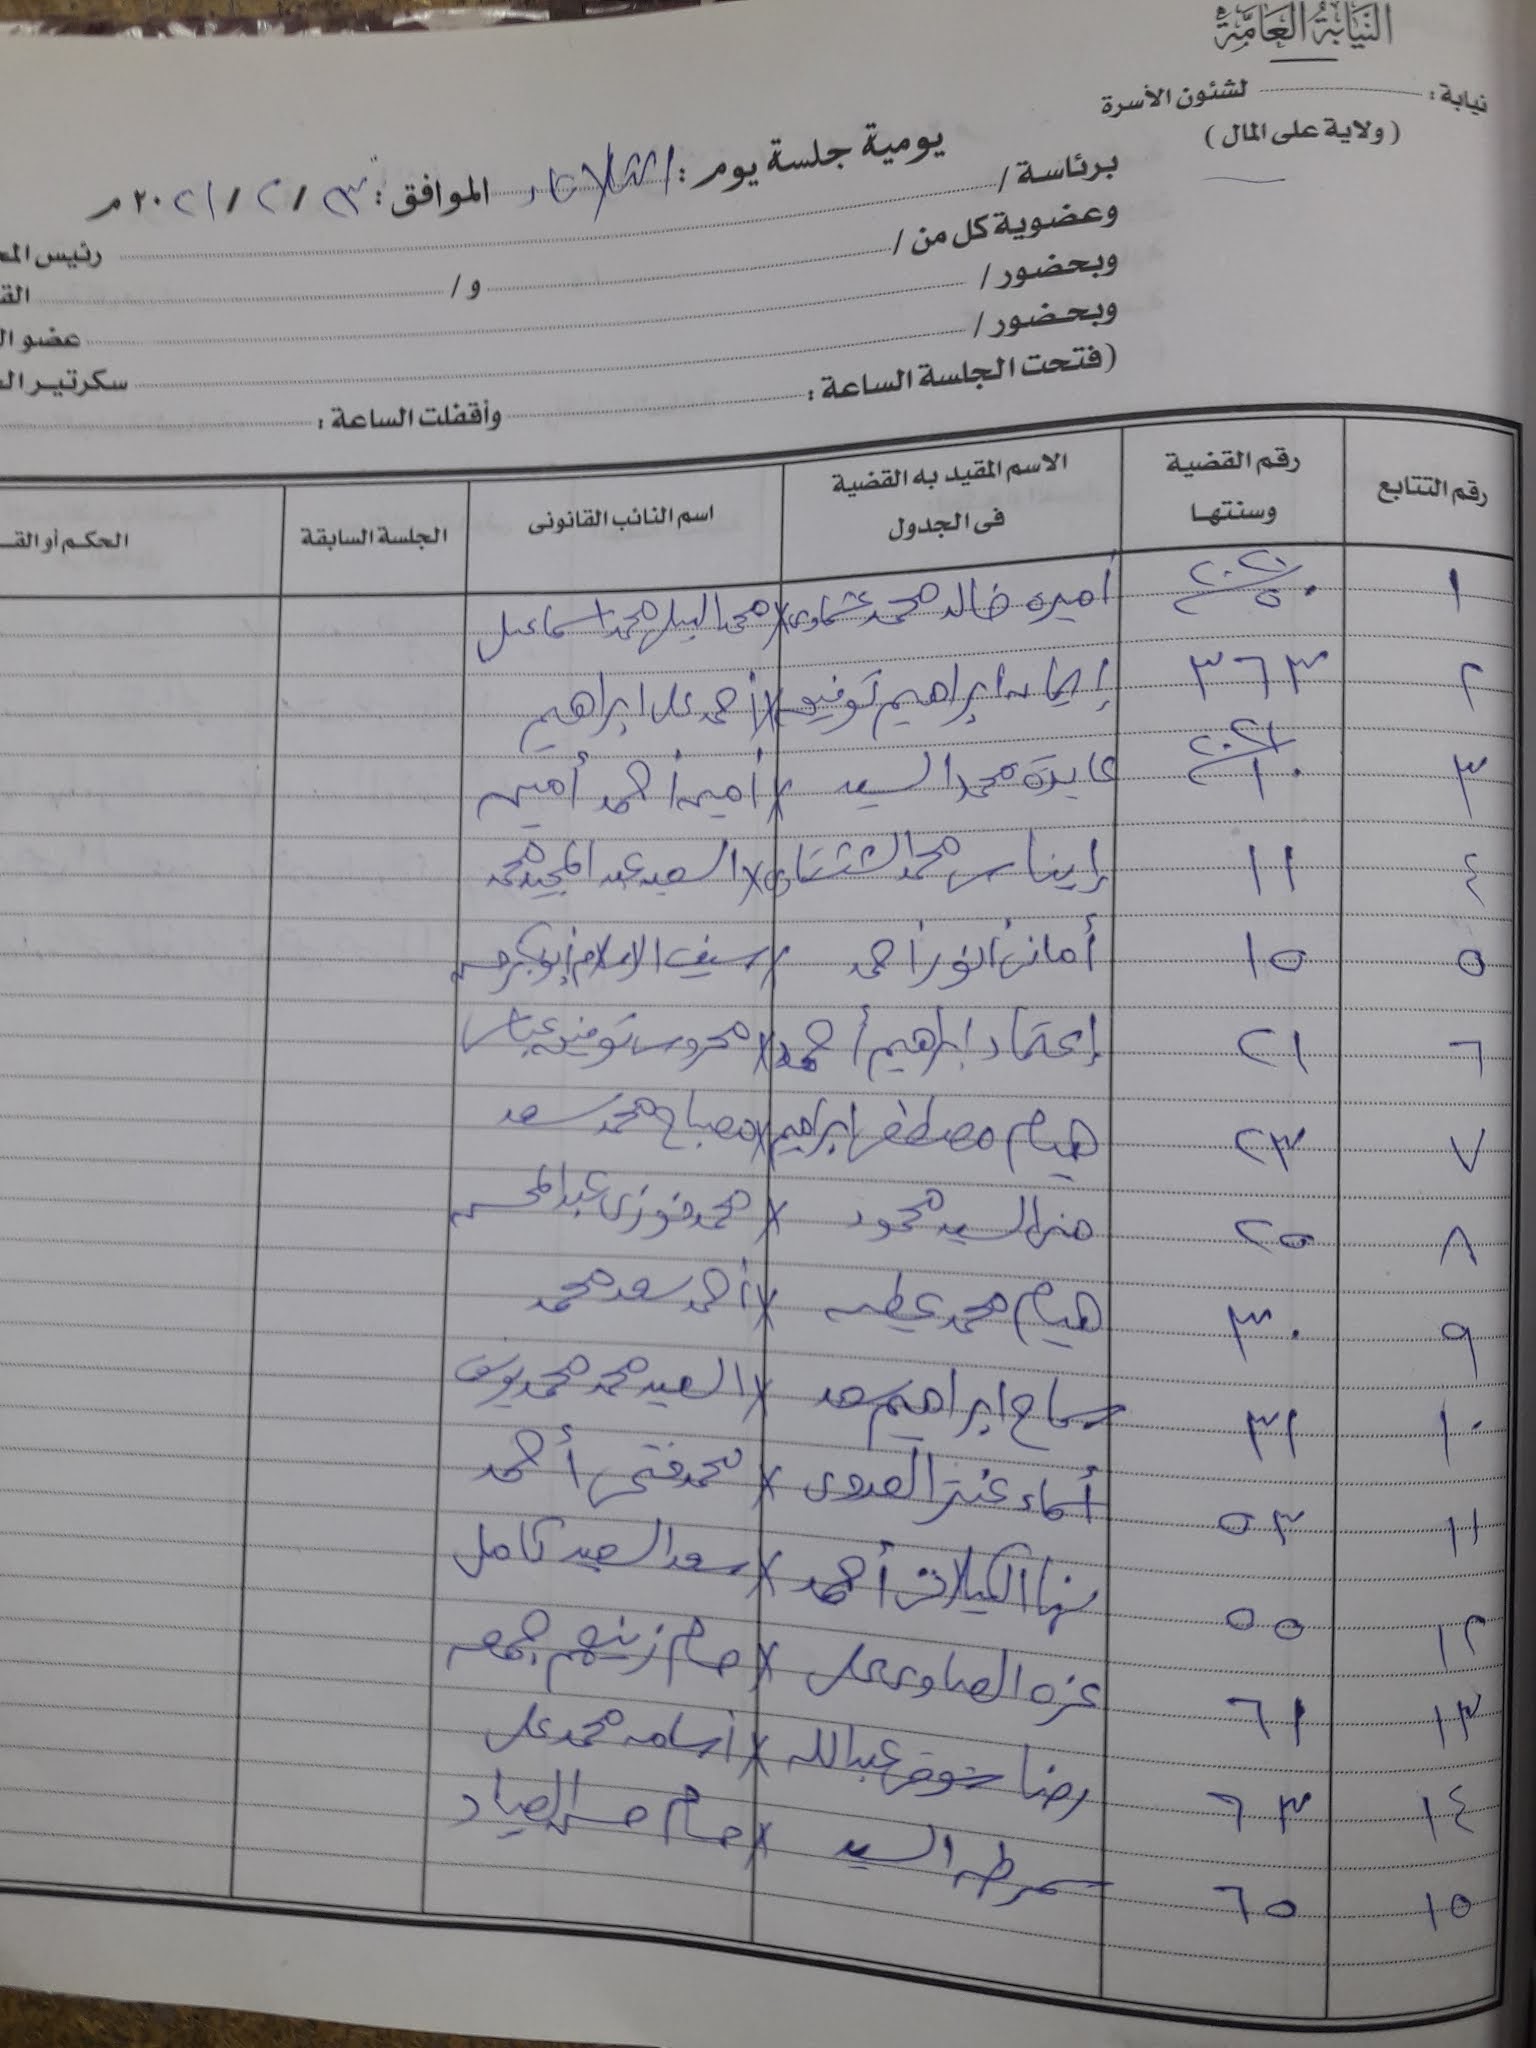 النيابة العامة
نيابة : لشئون الأسرة
( ولاية على المال )
يومية جلسة يوم : الثلاثاء الموافق : ٣ / ٢ / ٢٠٢١ م
برئاسة / رئيس
وعضوية كل من / و /
وبحضور / عضو
وبحضور / سكرتير
(فتحت الجلسة الساعة : وأقفلت الساعة :
رقم التتابع رقم القضية وسنتها الاسم المقيد به القضية فى الجدول اسم النائب القانونى الجلسة السابقة الحكم أو
١ ٢٠٢٠ أميره خالد محمد عشماوى محمد محمد اسماعيل
٢ ٣٦٣ إيمان ابراهيم توفيق أحمد على ابراهيم
٣ ٢٠٢١ ١٠ عايدة محمد السيد أمين أحمد أمين
٤ ١١ إيناس محمد الششتاوى السعيد عبد المجيد محمد
٥ ١٥ أمانى أنور أحمد سيف الاسلام أبو بكر حسن
٦ ٢١ إعتماد ابراهيم أحمد محروس توفيق عباس
٧ ٢٣ هيام مصطفى ابراهيم مصباح محمد سعد
٨ ٢٥ منى السيد محمود محمد فوزى عبد المحسن
٩ ٣٠ هيام محمد عطيه أحمد سعد محمد
١٠ ٣١ سماح ابراهيم سعد السعيد محمد محمد يوسف
١١ ٥٣ أسماء عنتر العدوى محمد فتحى أحمد
١٢ ٥٥ نها الكيلانى أحمد سعد السعيد كامل
١٣ ٦١ عزه الصاوى على حسام زينهم جمعه
١٤ ٦٣ رضا شوقى عبدالله أسامه محمد على
١٥ ٦٥ سمر طه السيد حسام حسن الصياد